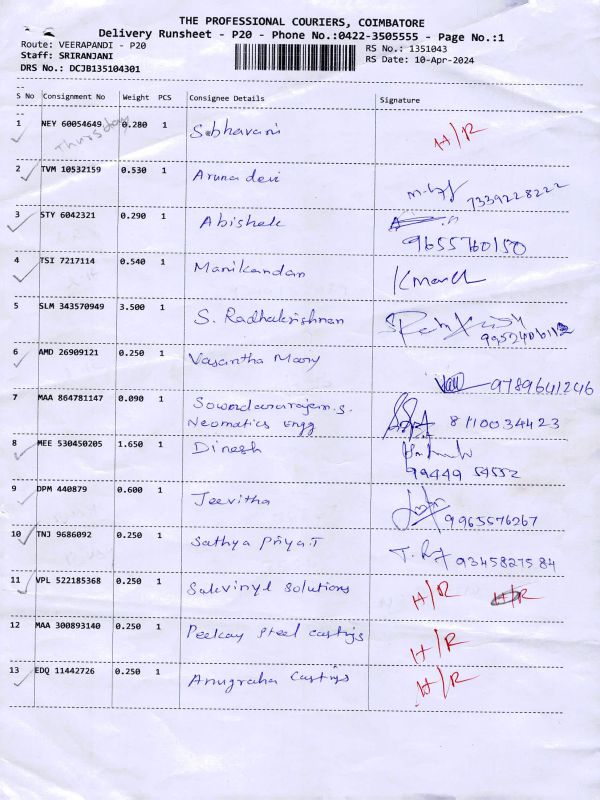 THE PROFESSIONAL COURIERS, COIMBATORE
Delivery Runsheet - P20 - Phone No.:0422-3505555 - Page No.:1
Route: VEERAPANDI - P20 RS No.: 1351043
Staff: SRIRANJANI RS Date: 10-Apr-2024
DRS No.: DCJB135104301
S No Consignment No Weight PCS Consignee Details Signature
1 NEY 60054649 0.280 1 S.bhavani H/R
Thursday
2 TVM 10532159 0.530 1 Aruna devi 7339228222
3 STY 6042321 0.290 1 Abishek
9655760150
4 TSI 7217114 0.540 1 Manikandan
5 SLM 343570949 3.500 1 S. Radhakrishnan
6 AMD 26909121 0.250 1 Vasantha Mary 9789641246
7 MAA 864781147 0.090 1 Sowndararajan.S. 8110034423
Neomatics Engg
8 MEE 530450205 1.650 1 Dinesh
99449 54552
9 DPM 440879 0.600 1 Jeevitha 9965576267
10 TNJ 9686092 0.250 1 Sathya Priya.T 9345827584
11 VPL 522185368 0.250 1 Sakvinyl Solutions H/R H/R
12 MAA 300893140 0.250 1 Peekay Steel Castigs H/R
13 EDQ 11442726 0.250 1 Anugraha Castigs H/R